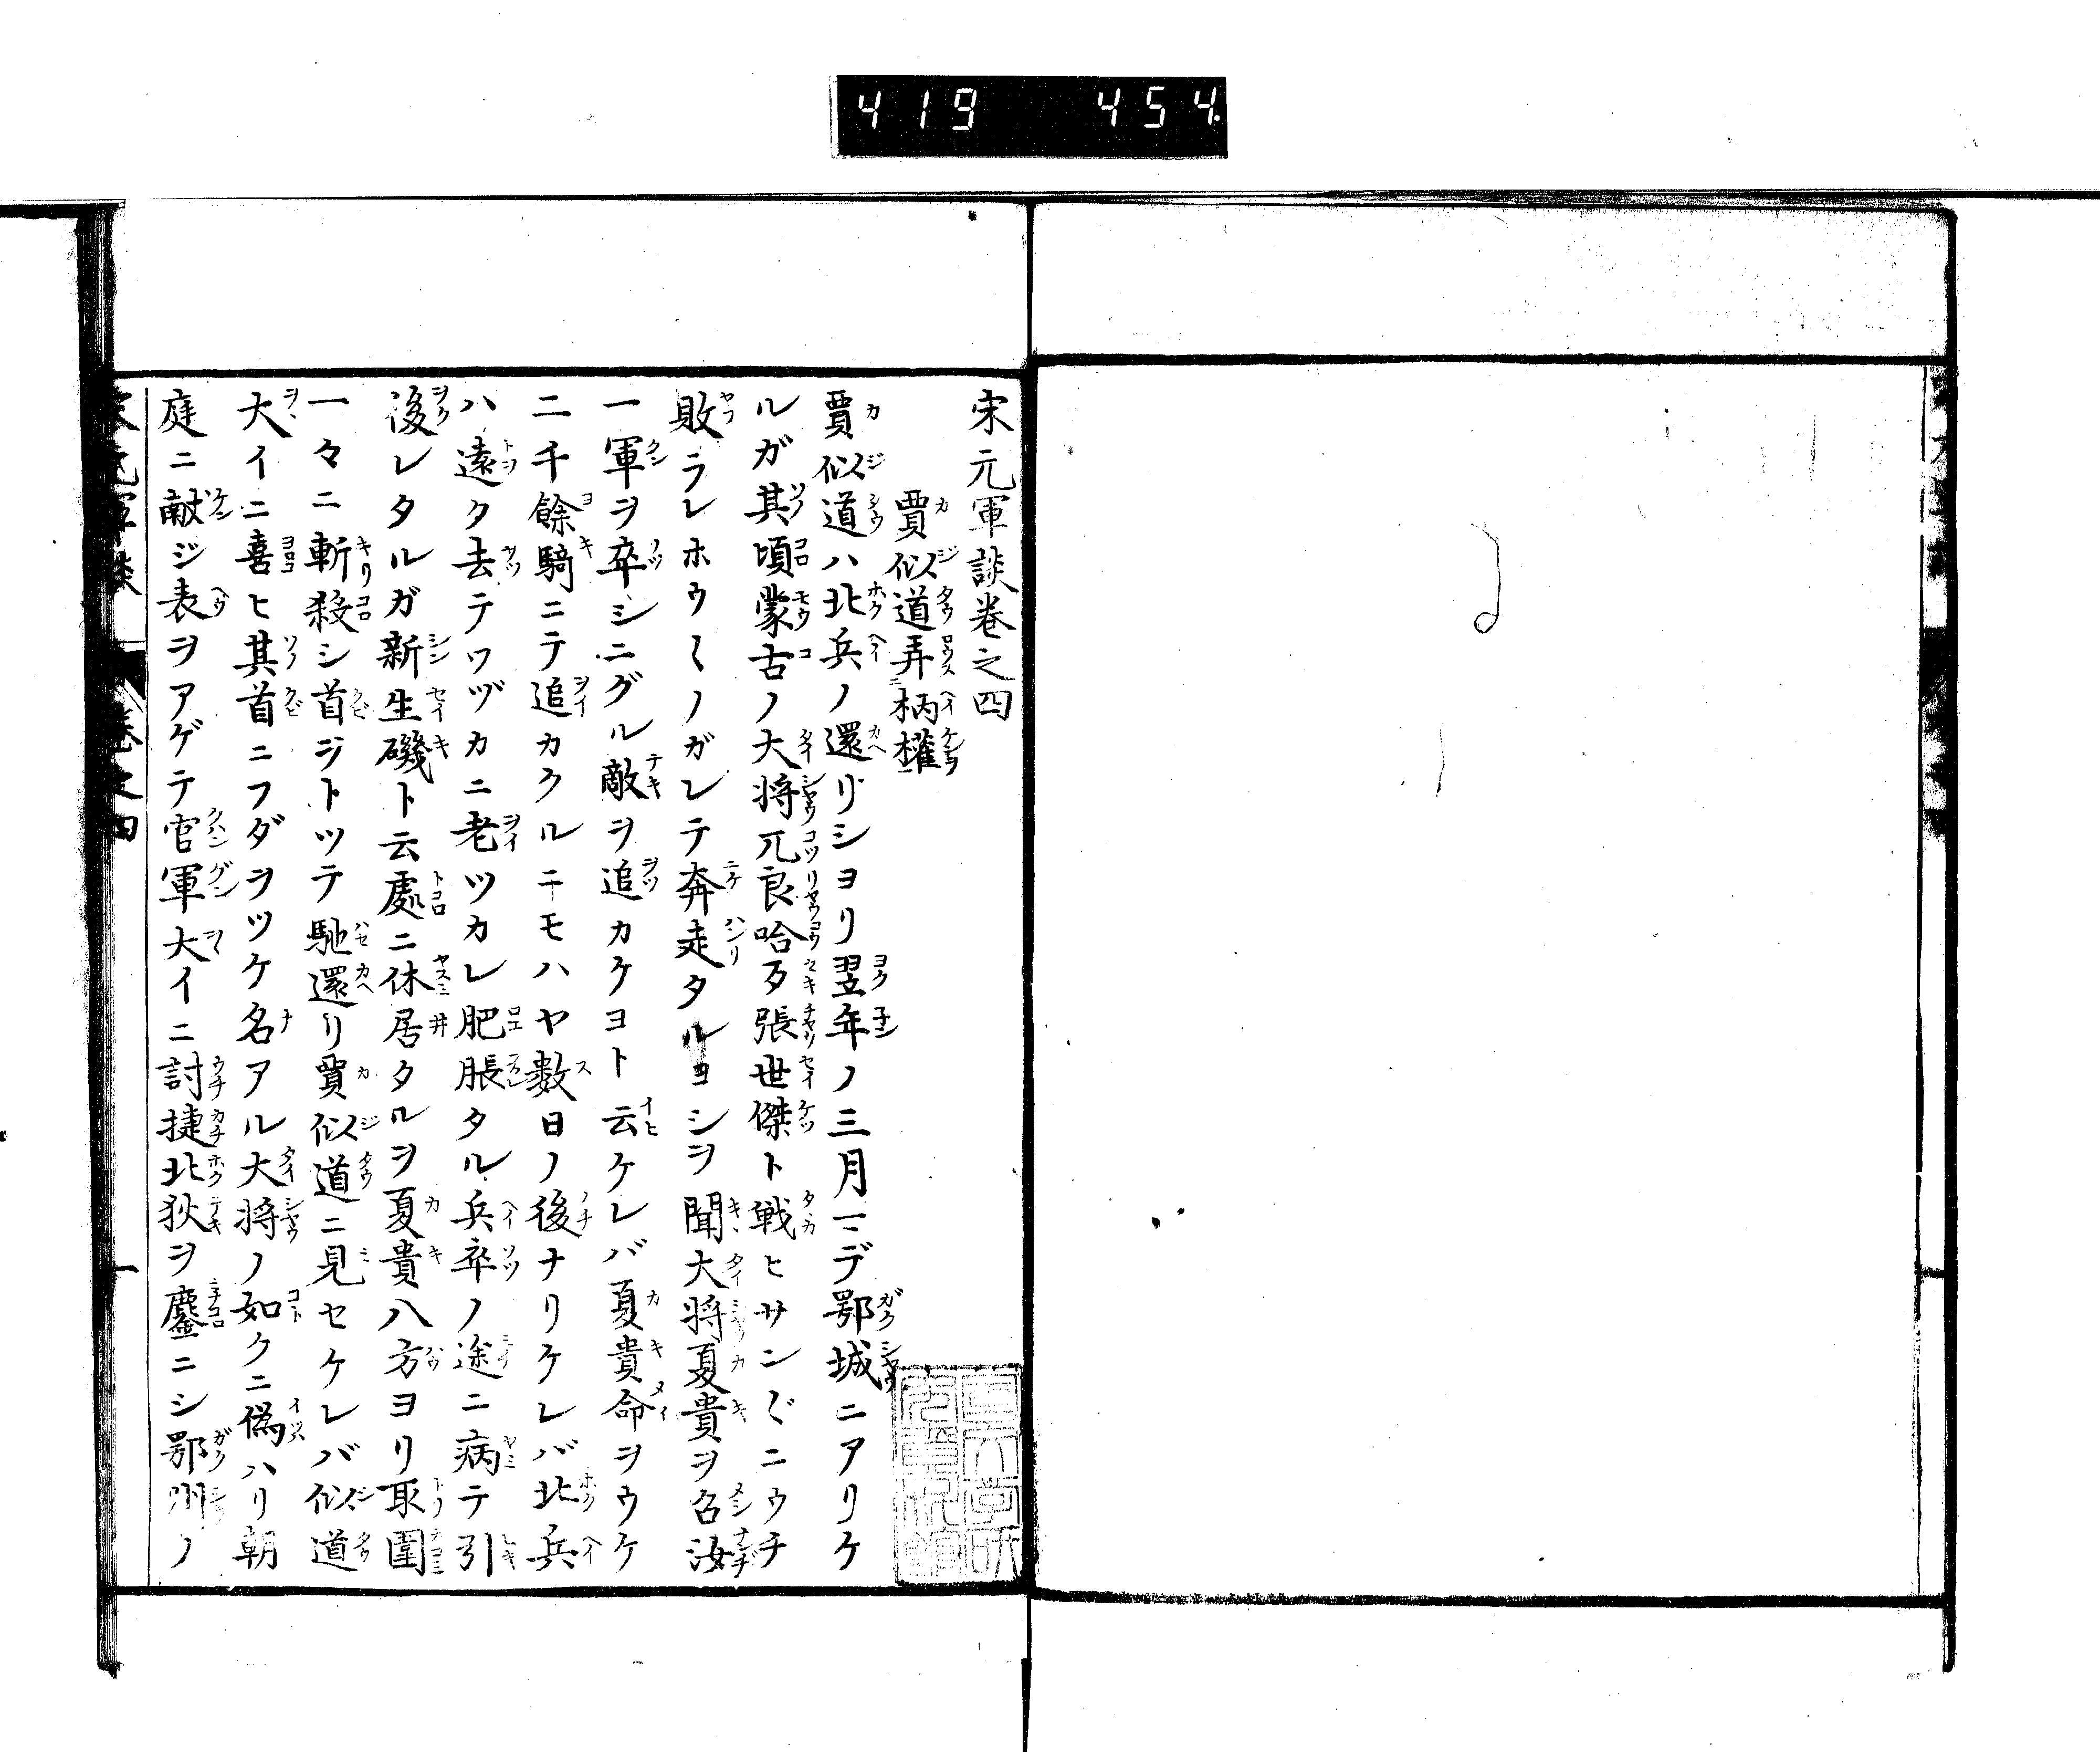 419 454
宋元軍談巻之四
賈似道弄柄權
賈似道ハ北兵ノ還リシヨリ翌年ノ三月マデ鄂城ニアリケ
ルガ其頃蒙古ノ大将兀良哈歹張世傑ト戦ヒサン〲ニウチ
敗ラレホウ〱ノガレテ奔走タルヨシヲ聞大将夏貴ヲ召汝
一軍ヲ卒シニグル敵ヲ追カケヨト云ケレバ夏貴命ヲウケ
二千餘騎ニテ追カクルニモハヤ数日ノ後ナリケレバ北兵
ハ遠ク去テワヅカニ老ツカレ肥脹タル兵卒ノ途ニ病テ引
後レタルガ新生磯ト云處ニ休居タルヲ夏貴八方ヨリ取圍
一々ニ斬殺シ首ヲトツテ馳還リ賈似道ニ見セケレバ似道
大イニ喜ヒ其首ニフダヲツケ名アル大将ノ如クニ偽ハリ朝
庭ニ献ジ表ヲアゲテ官軍大イニ討捷北狄ヲ鏖ニシ鄂州ノ
宋元軍談 巻之四 一